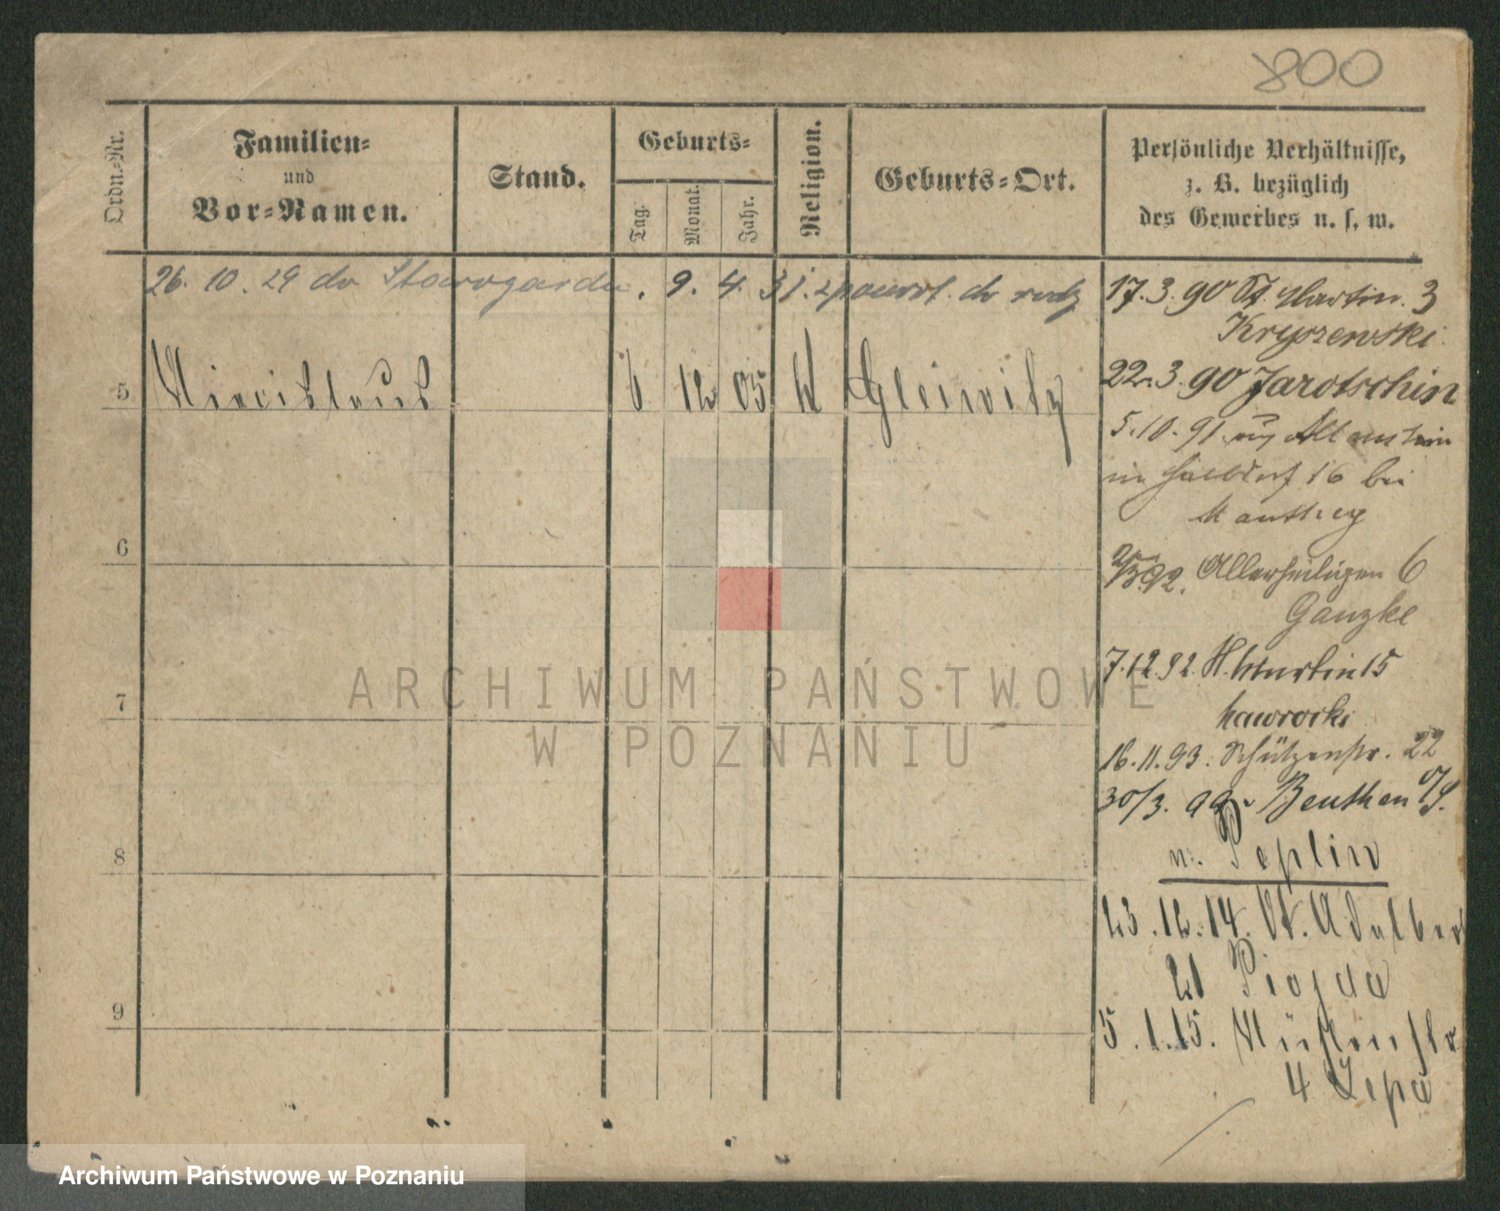 800
Ordn.-Nr.
Familien-
und
Vor-Namen.
Stand.
Geburts-
Tag.
Monat.
Jahr.
Religion.
Geburts-Ort.
Persönliche Verhältnisse,
z. B. bezüglich
des Gewerbes u. s. w.
26. 10. 29 do Starogardu. 9. 4. 31. zpowrot. do
17.3.90 St. Martin. 3
Kryszewski.
5 Miecislaus 6 12 05 k Gleiwitz
22.3.90 Jarotschin
5.10.91. Allenstein
in 16 bei
6
92. Allerheiligen 6
Ganzke
7
7.12.92. St. Martin 15
Nawrocki
16.11.93. Schützenstr. 22
30/3. 99. Beuthen O/S.
8
n. Peplin
23.12.14. St. Adalbert
21
9
5.1.15. Mühlenstr
4 Zepa
ARCHIWUM PAŃSTWOWE
W POZNANIU
Archiwum Państwowe w Poznaniu